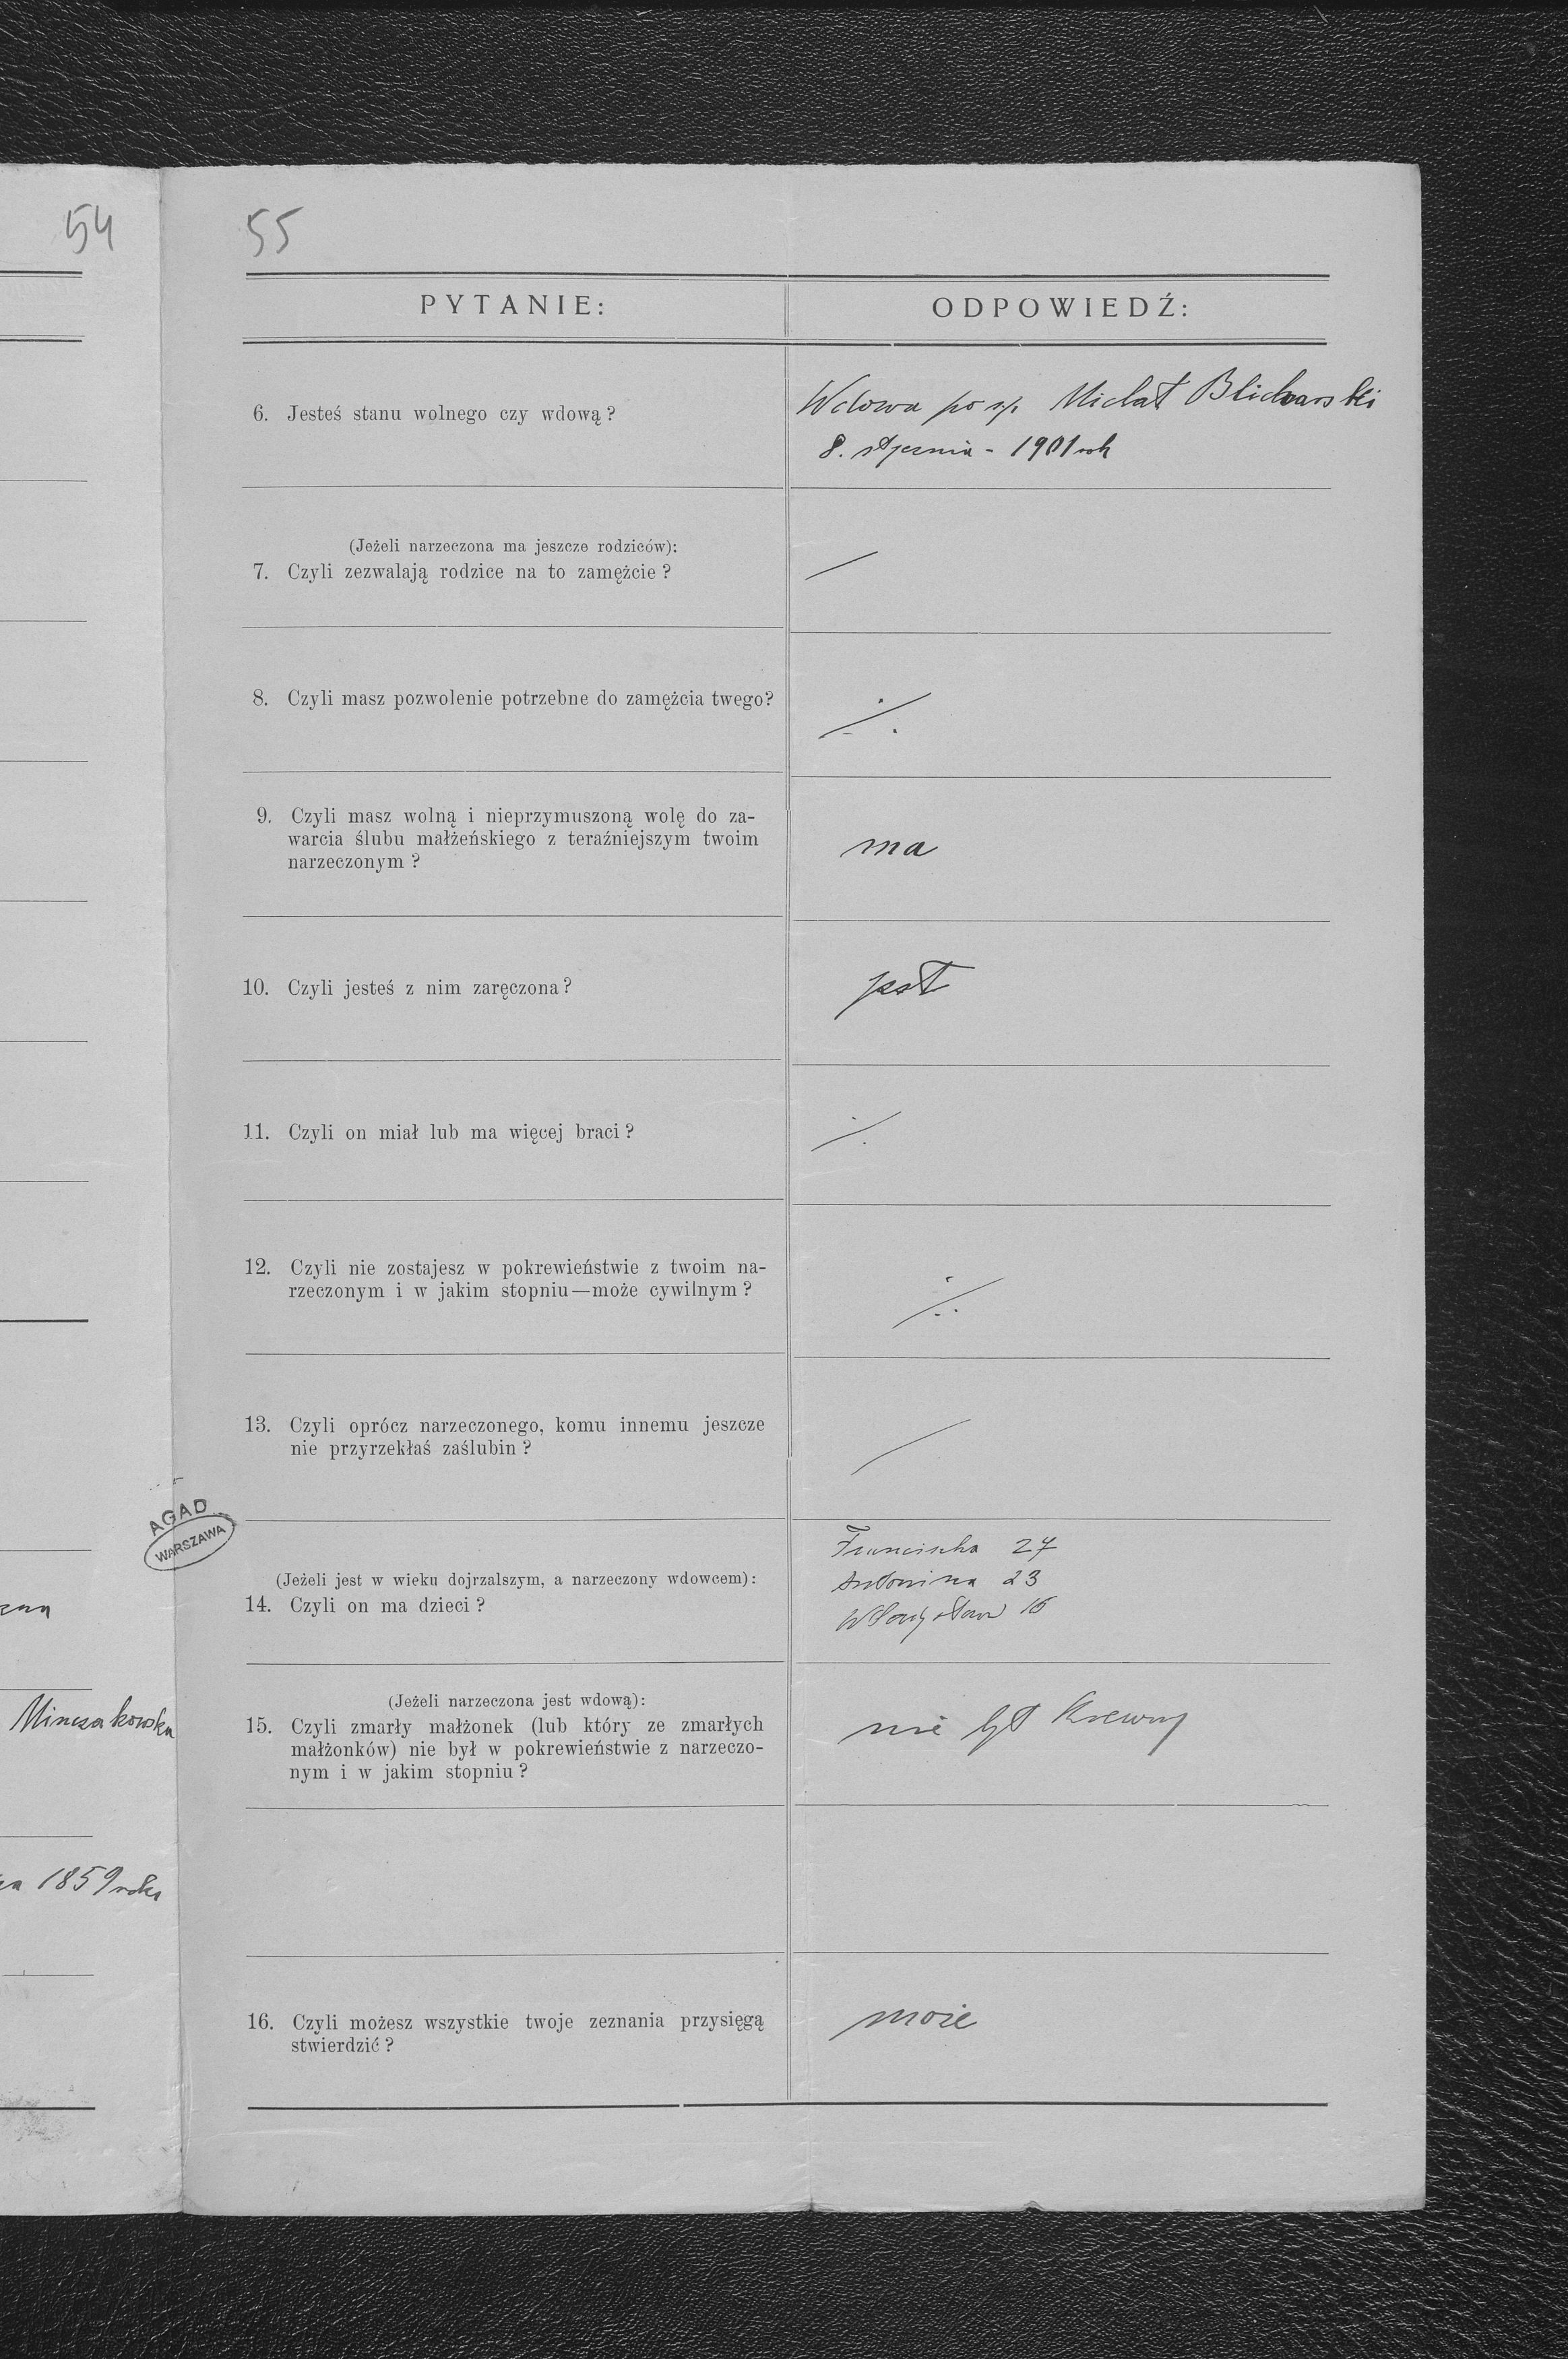 54
55
PYTANIE:
ODPOWIEDŹ:
6. Jesteś stanu wolnego czy wdową?
Wdowa po śp. Michał Blicharski
8. stycznia - 1901 rok
(Jeżeli narzeczona ma jeszcze rodziców):
7. Czyli zezwalają rodzice na to zamężcie?
—
8. Czyli masz pozwolenie potrzebne do zamężcia twego?
⁒
9. Czyli masz wolną i nieprzymuszoną wolę do za-
warcia ślubu małżeńskiego z teraźniejszym twoim
narzeczonym?
ma
10. Czyli jesteś z nim zaręczona?
jest
11. Czyli on miał lub ma więcej braci?
⁒
12. Czyli nie zostajesz w pokrewieństwie z twoim na-
rzeczonym i w jakim stopniu—może cywilnym?
⁒
13. Czyli oprócz narzeczonego, komu innemu jeszcze
nie przyrzekłaś zaślubin?
—
(Jeżeli jest w wieku dojrzalszym, a narzeczony wdowcem):
14. Czyli on ma dzieci?
Franciszka 27
Antonina 23
Władysław
AGAD
WARSZAWA
(Jeżeli narzeczona jest wdową):
15. Czyli zmarły małżonek (lub który ze zmarłych
małżonków) nie był w pokrewieństwie z narzeczo-
nym i w jakim stopniu?
nie był krewny
Minczakowska
1859 roku
16. Czyli możesz wszystkie twoje zeznania przysięgą
stwierdzić?
może